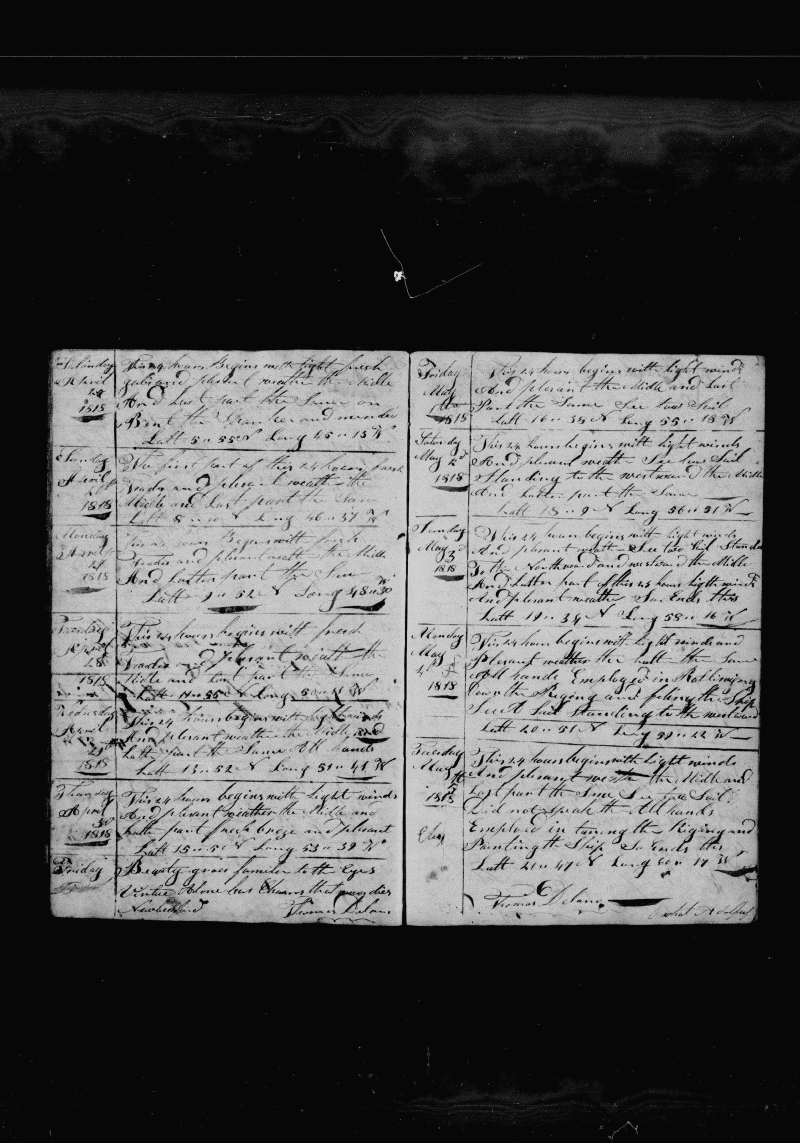 Saturday
April
25
1818
This 24 hours Begins with light fresh
gales and plesent weather the Middle
And Last part the Same
Bent the Spanker and
Latt 5 = 55 N Long 45 = 13 W
Sunday
April
1818
The first part of this 24 hours fresh
Trades and plesent weath the
Middle and Last part the Same
Latt N Long 46 = 37 W
Monday
April
1818
This 24 hours Begins with fresh
Trades and plesent weath the Middle
And Latter part the Same
Latt 9 = 52 N Long 48 = 30 W
Tuesday
April
28
1818
This 24 hours begins with fresh
Trades and plesent weath the
Midle and Last part the Same
Latt 11 = 55 N Long 50 = 11 W
Wednesday
April
29
1818
This 24 hours begins with light winds
And plesent weather the Middle and
Latter part the Same All hands
Latt 13 = 52 N Long 51 = 41 W
Thursday
April
30
1818
This 24 hours begins with Light winds
And plesent weather the Middle and
Latter part fresh breze and plesent
Latt 15 = 5 N Long 53 = 39 W
Friday
Beauty grows familer to the Eyes
Virtue Alone has Charms that never dies
Newbedford Thomas Delano
Friday
May
1
1818
This 24 hours begins with light winds
And plesant the Middle and Last
Part the Same See two Sail
Latt 16 = 35 N Long 55 = 18 W
Saturday
May 2d
1818
This 24 hours begins with light winds
And plesant weath See one Sail
Standing to the westward the Middle
And Latter part the Same
Latt 18 = 9 N Long 56 = 51 W
Sunday
May
3
1818
This 24 hours begins with light winds
And plesant weath See two Sail Standing
To the Northward and westward the Middle
And Latter part of this 24 hours light winds
And plesant weather So Ends this
Latt 19 = 34 N Long 58 = 16 W
Monday
May
4
1818
This 24 hours begins with light winds and
Plesant weather the latt the Same
All hands Employed in Ratlining
Down the Riging and the Ship
See 1 Sail Standing to the westward
Latt 20 = 51 N Long 59 = 22 W
Tuesday
May
1818
This 24 hours begins with light winds
And plesant weath the Middle and
Last part the Same See two Sail
Did not speak th All hands
Employd in taring the Riging and
Painting the Ship So Ends this
Latt 21 = 47 N Long 60 = 17 W
Thomas Delano